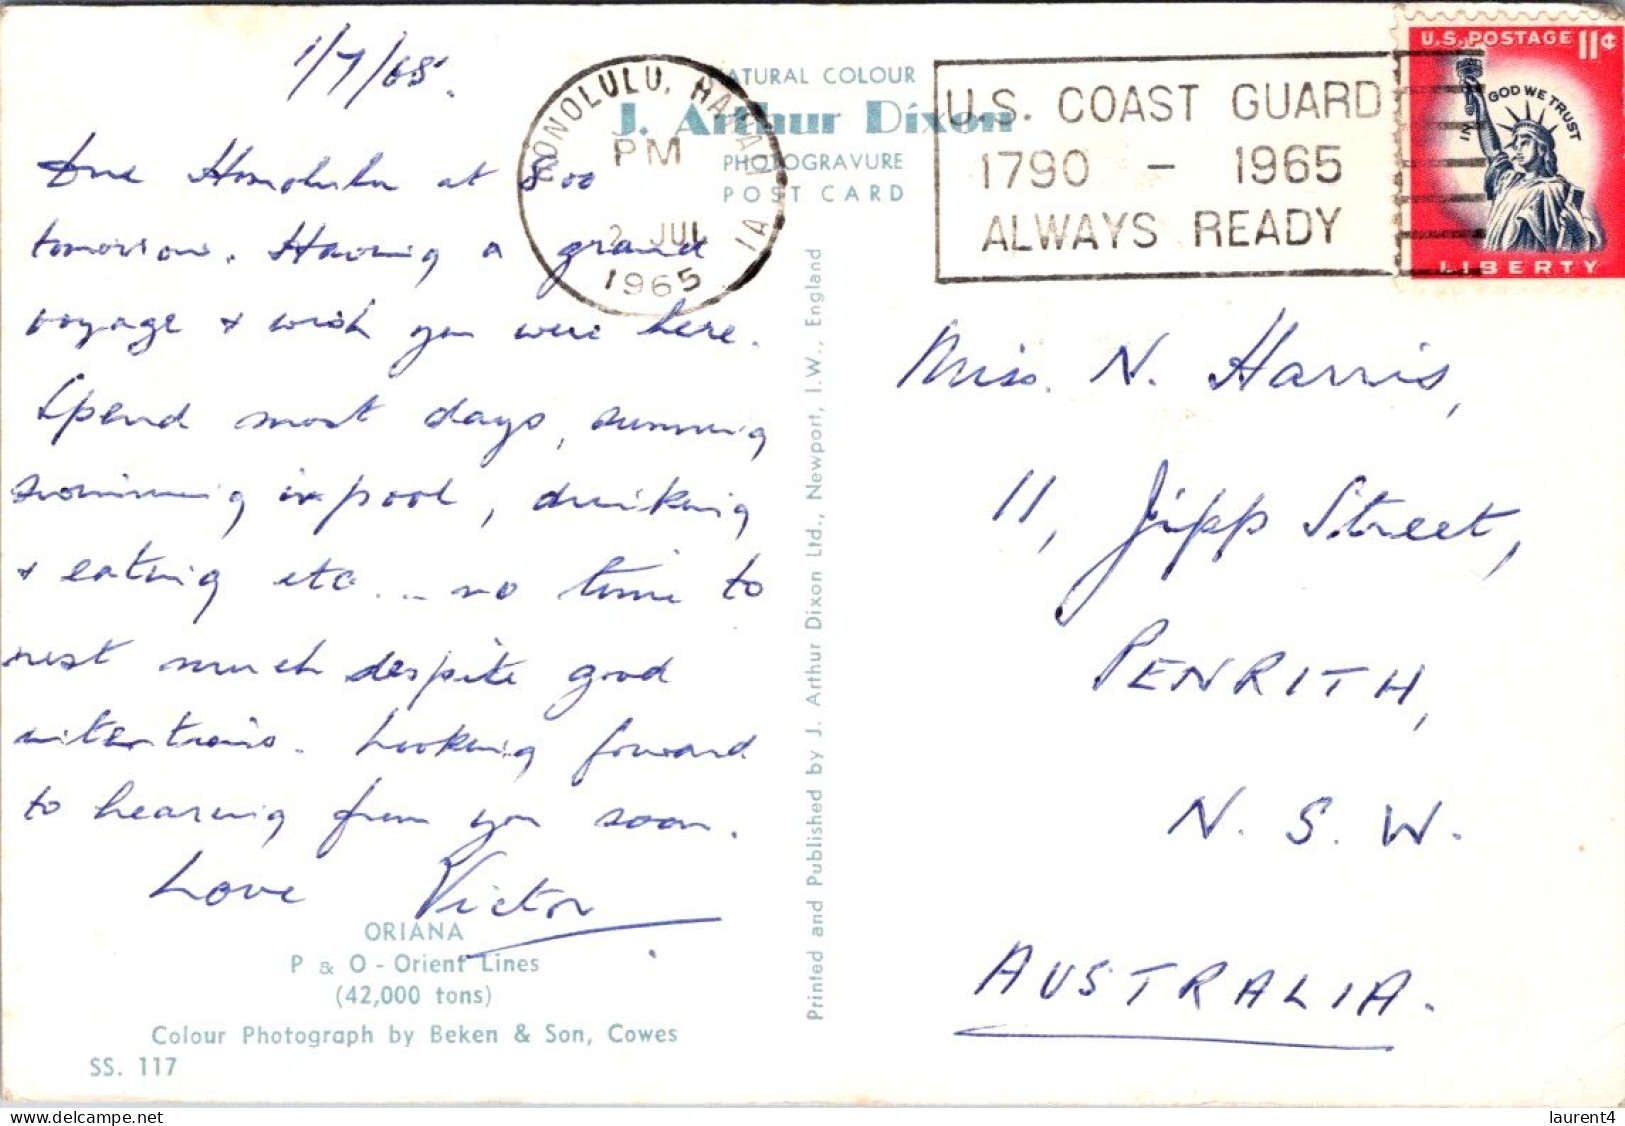 1/7/65.
Due Honolulu at 8.00
tomorrow. Having a grand
voyage & wish you were here.
Spend most days, sunning
swimming in pool, drinking
& eating etc... no time to
rest much despite good
intentions. Looking forward
to hearing from you soon.
Love Victor
ORIANA
P & O - Orient Lines
(42,000 tons)
Colour Photograph by Beken & Son, Cowes
SS. 117
NATURAL COLOUR
J. Arthur Dixon
PHOTOGRAVURE
POST CARD
HONOLULU, HAWAII
PM
2 JUL
1965
U.S. COAST GUARD
1790 - 1965
ALWAYS READY
U.S. POSTAGE 11¢
IN GOD WE TRUST
LIBERTY
Printed and Published by J. Arthur Dixon Ltd., Newport, I.W., England
Miss. N. Harris,
11, Jipp Street,
PENRITH,
N. S. W.
AUSTRALIA.
https://www.delcampe.net
laurent4